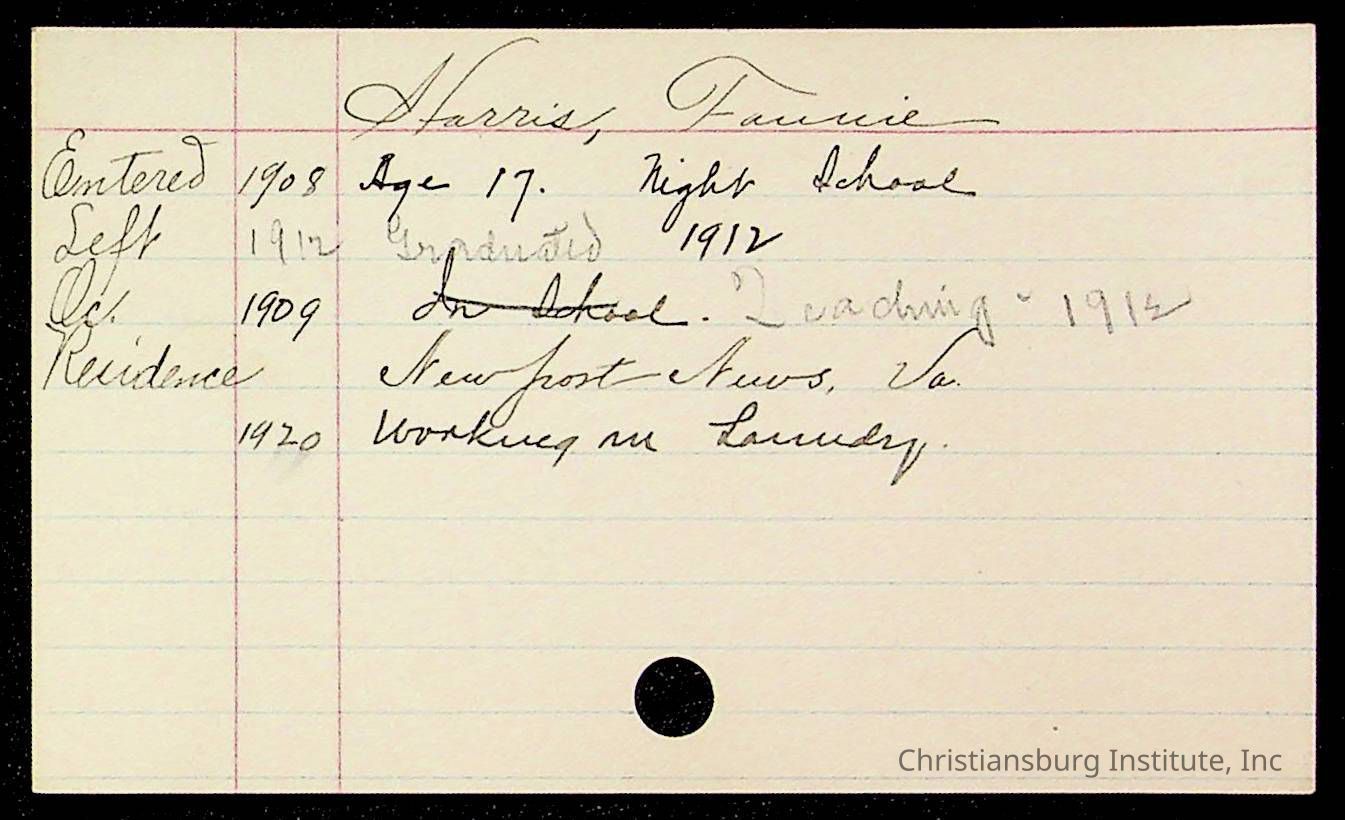 Harris, Fannie
Entered 1908 Age 17. Night School
Left 1912 Graduated 1912
Oc. 1909 In School. Teaching - 1912
Residence Newport News, Va.
1920 Working in Laundry.
Christiansburg Institute, Inc